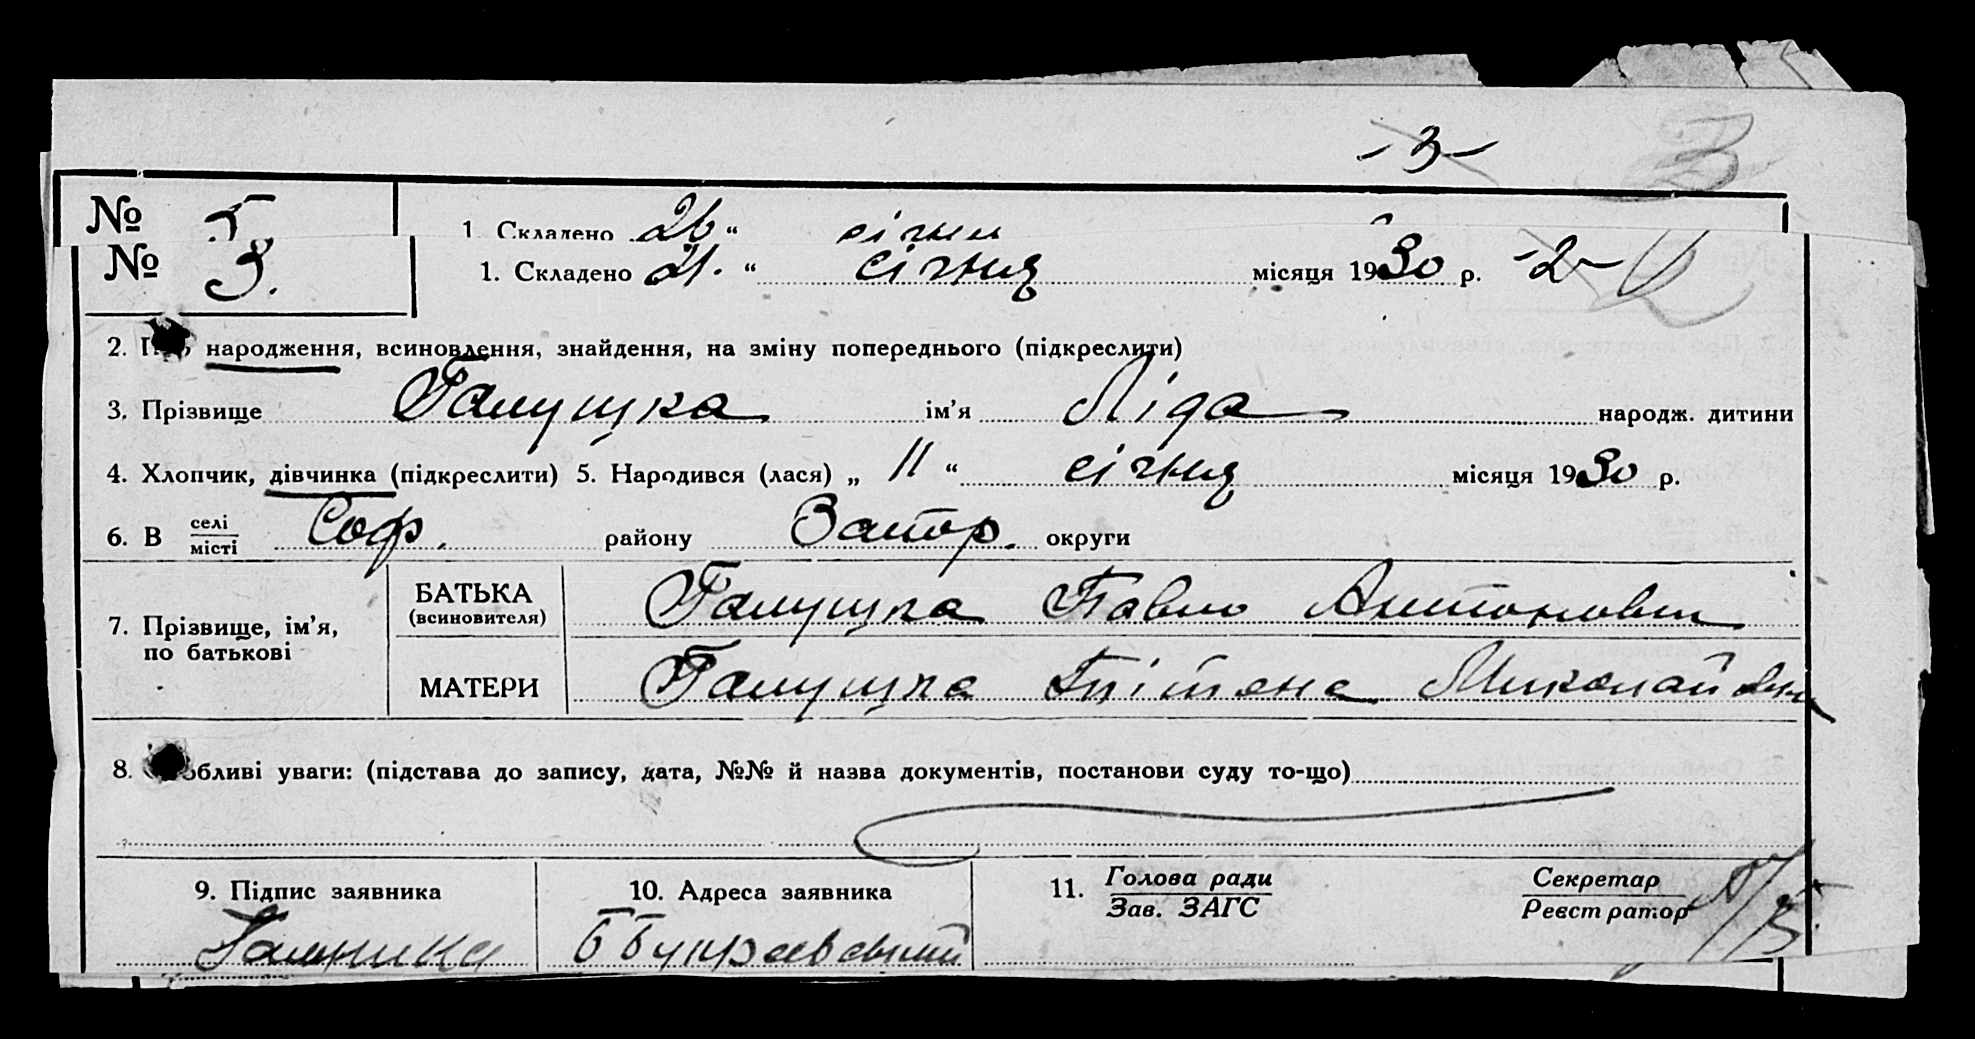 -3- 3
№ 5 1. Складено 26 " січня
№ 3. 1. Складено 21. " січня місяця 1930 р. -2-
2. народження, всиновлення, знайдення, на зміну попереднього (підкреслити)
3. Прізвище Галущка ім'я Ліда народж. дитини
4. Хлопчик, дівчинка (підкреслити) 5. Народився (лася) „ 11 " січня місяця 1930 р.
6. В селі / місті Соф. району Запор. округи
7. Прізвище, ім'я, по батькові
БАТЬКА (всиновителя) Галущка Павло Антонович
МАТЕРИ Галущка Миколаївна
8. обливі уваги: (підстава до запису, дата, №№ й назва документів, постанови суду то-що)
9. Підпис заявника 10. Адреса заявника 11. Голова ради / Зав. ЗАГС Секретар / Реєстратор